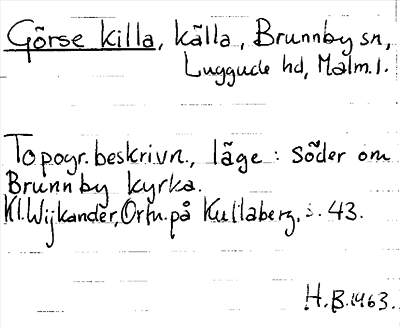 Görse killa, källa, Brunnby sn,
Luggude hd, Malm. l.
Topogr. beskrivn., läge: söder om
Brunnby kyrka.
Kl. Wijkander, Ortn. på Kullaberg, s. 43.
H.B. 1963.